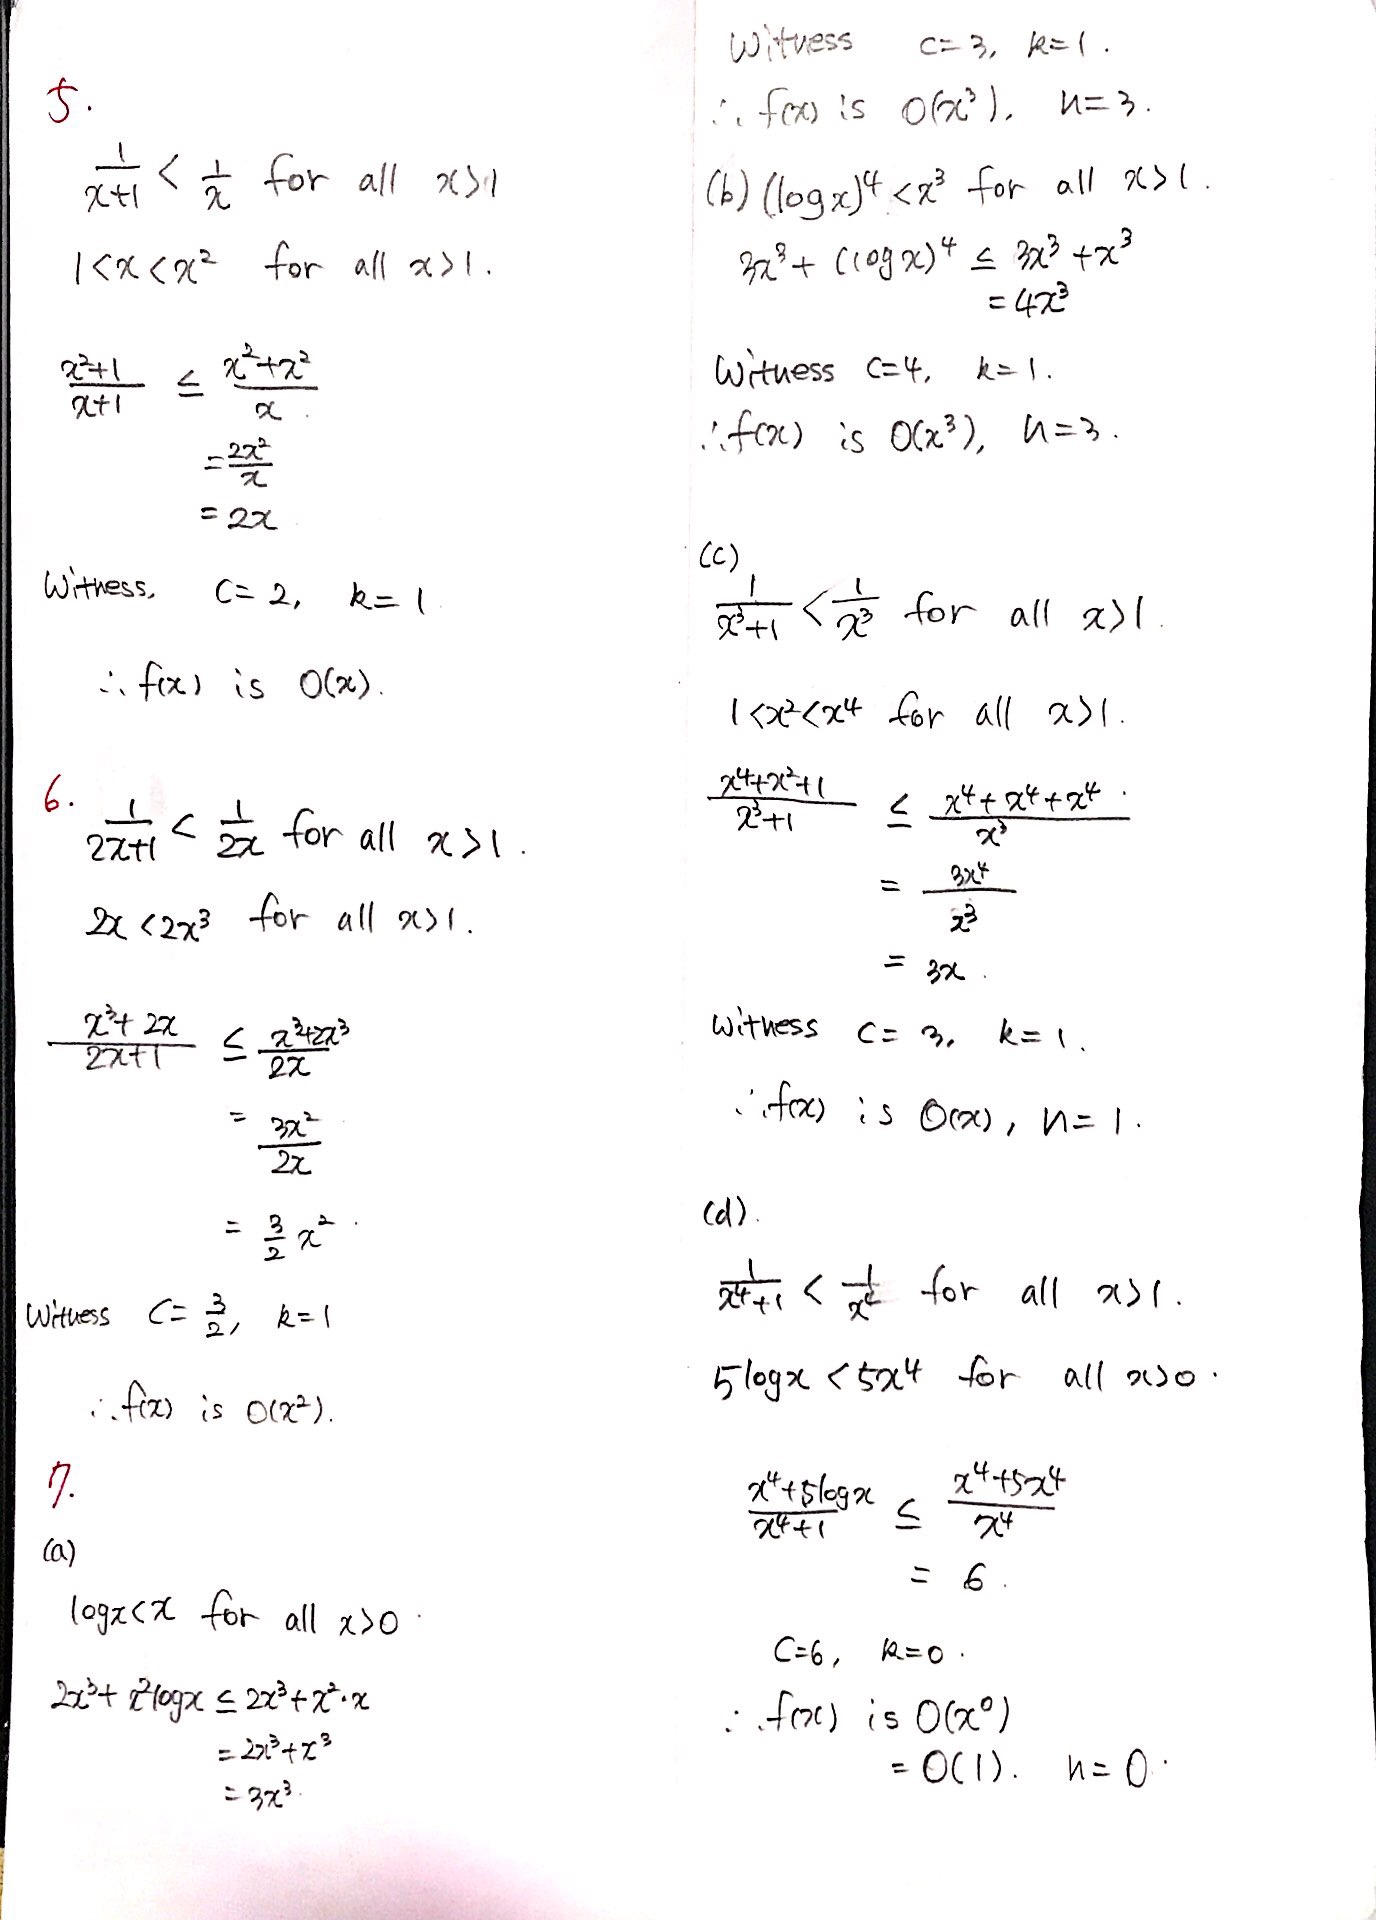 5.
1/(x+1) < 1/x for all x>1
1<x<x² for all x>1.
(x²+1)/(x+1) ≤ (x²+x²)/x
= 2x²/x
= 2x
Witness. C=2, k=1
∴ f(x) is O(x).
6.
1/(2x+1) < 1/(2x) for all x>1.
2x<2x³ for all x>1.
(x³+2x)/(2x+1) ≤ (x³+2x³)/(2x)
= 3x²/(2x)
= 3/2 x².
Witness C=3/2, k=1
∴ f(x) is O(x²).
7.
(a)
logx<x for all x>0.
2x³+x²logx ≤ 2x³+x²·x
= 2x³+x³
= 3x³.
Witness C=3, k=1.
∴ f(x) is O(x³). n=3.
(b) (logx)⁴<x³ for all x>1.
3x³+(logx)⁴ ≤ 3x³+x³
= 4x³
Witness C=4, k=1.
∴ f(x) is O(x³), n=3.
(c)
1/(x³+1) < 1/x³ for all x>1.
1<x²<x⁴ for all x>1.
(x⁴+x²+1)/(x³+1) ≤ (x⁴+x⁴+x⁴)/x³
= 3x⁴/x³
= 3x.
Witness C=3, k=1.
∴ f(x) is O(x), n=1.
(d).
1/(x⁴+1) < 1/x⁴ for all x>1.
5logx<5x⁴ for all x>0.
(x⁴+5logx)/(x⁴+1) ≤ (x⁴+5x⁴)/x⁴
= 6.
C=6, k=0.
∴ f(x) is O(x⁰)
= O(1). n=0.